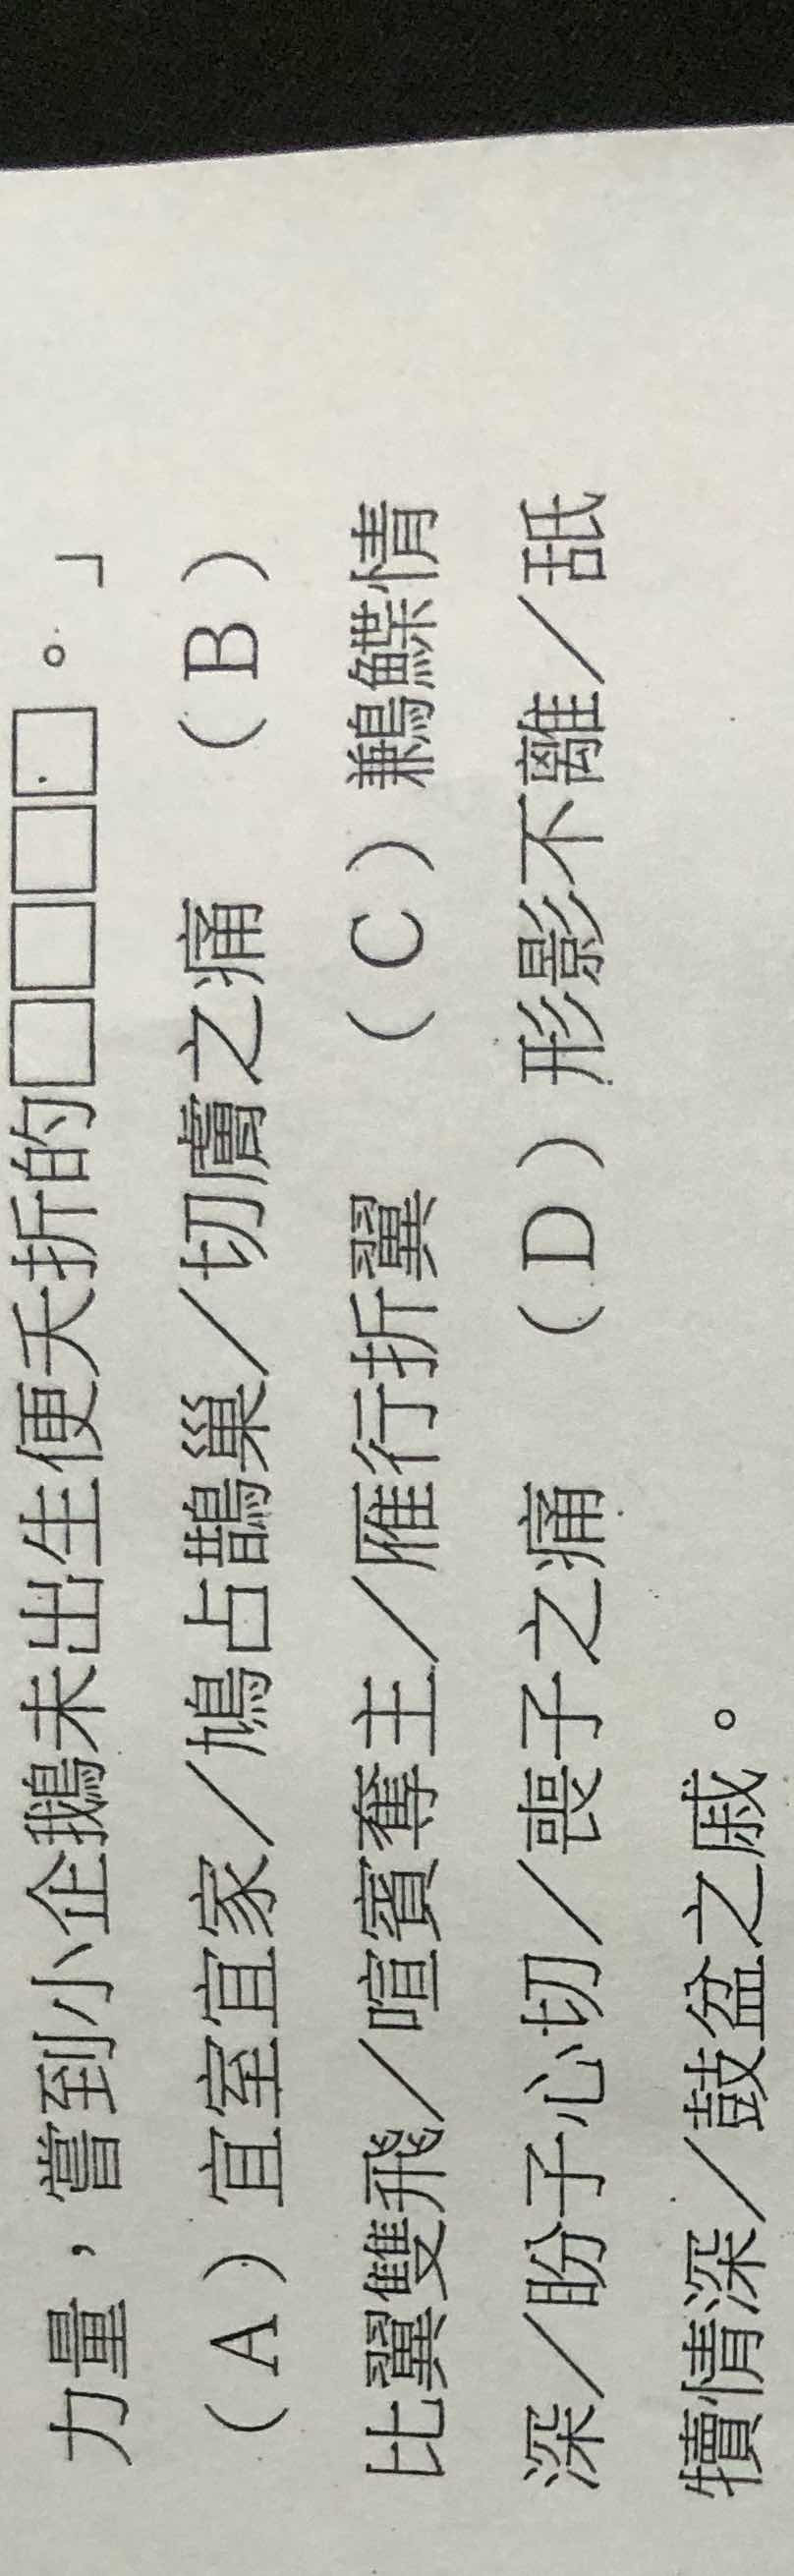 力量，嘗到小企鵝未出生便夭折的□□□□。」
（A）宜室宜家／鳩占鵲巢／切膚之痛　（B）
比翼雙飛／喧賓奪主／雁行折翼　（C）鶼鰈情
深／盼子心切／喪子之痛　（D）形影不離／舐
犢情深／鼓盆之戚。